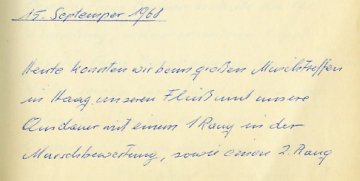 15. September 1968
Heute konnten wir beim großen Musiktreffen
in Haag unseren Fleiß und unsere
Ausdauer mit einem 1 Rang in der
Marschbewertung, sowie einen 2. Rang